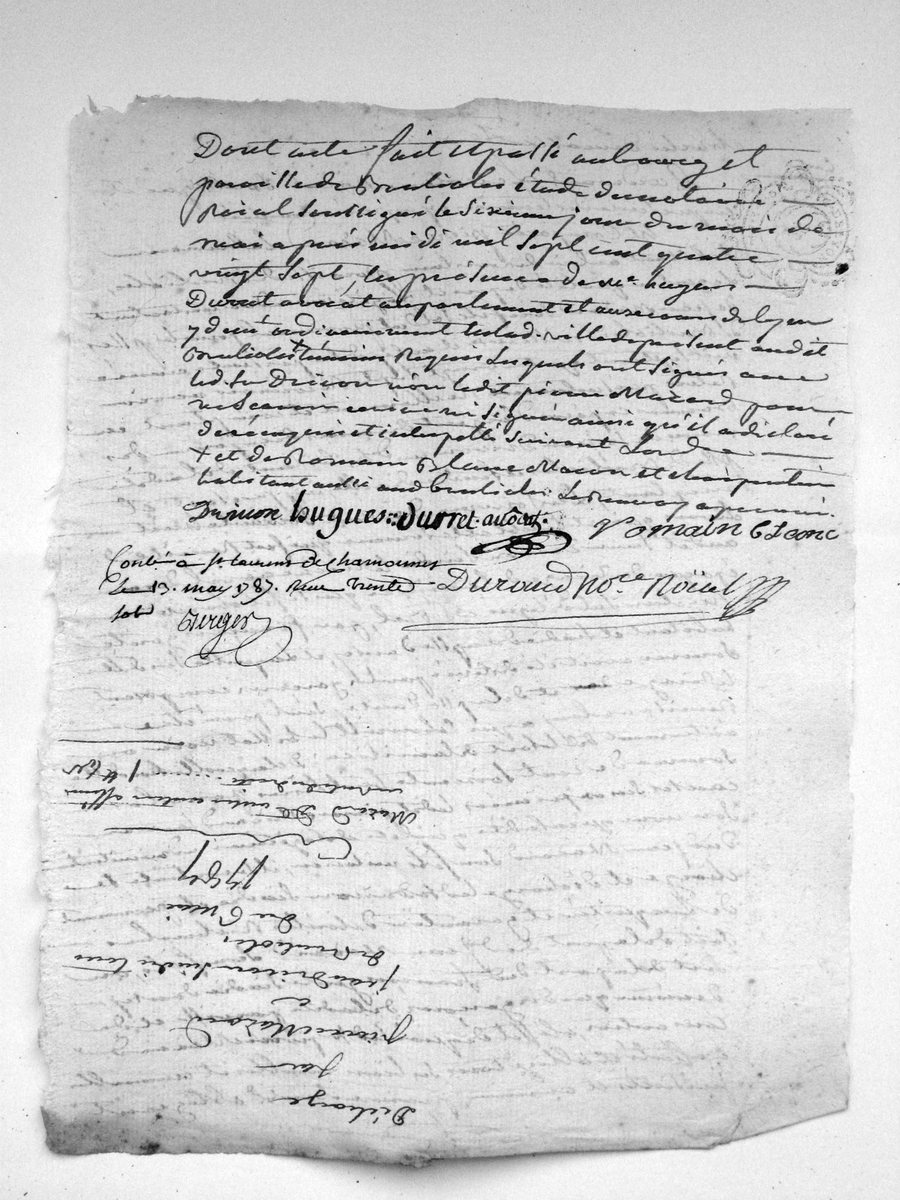 Dont acte fait et passé au bourg et
paroisse de Brulioles étude du notaire
roial soussigné le sixieme jour du mois de
mai après midi mil sept cent quatre
vingt sept, en présence de Me. hugues
Durret avocat au parlement et aux cours de lyon
y demt ordinairement en lad. ville de présent aud. et
Brulioles + témoins Requis Lesquels ont signés avec
led. Sr Drivon non ledit pierre Mazard pour
ne Scavoir écrire ni signer ainsi qu'il a déclaré
de ce enquis et interpellé suivant L'ord.
+ et de Romain Blanc Macon et charpentier
habitant aussi aud. Brulioles Le renvoy approuvé.
Drivon hugues :: Durret. avôcat. Romain Blanc
Durand Nore. Roïal
Conlé à St Laurent de Chamousset
le 13. may 1787. Reçu trente
sols
Verger
Décharge
par
pierre Mazard
à
jean Drivon
de Brulioles
Du 6 mai
1787